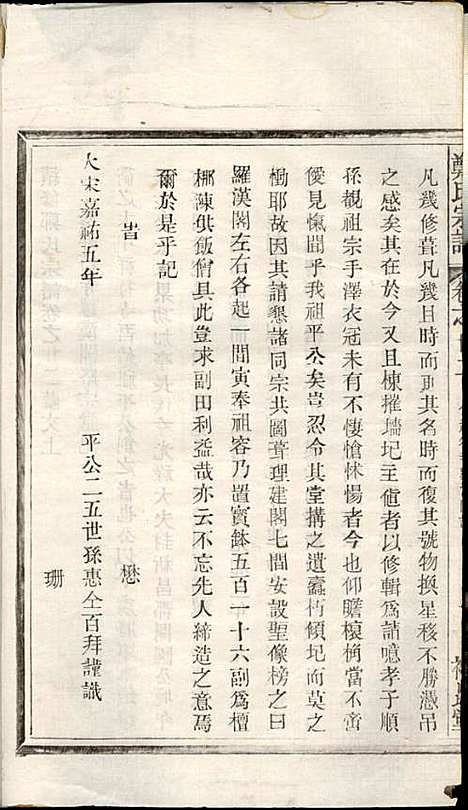 鄭氏宗譜
凡幾修葺凡幾日時而更其名時而復其號物換星移不勝憑弔
之感矣其在於今又且棟摧墻圮主僧者以修輯爲請噫孝子順
孫覩祖宗手澤衣冠未有不悽愴怵惕者今也仰瞻榱桷當不
僾見愾聞乎我祖平公矣豈忍令其堂搆之遺蠹朽傾圮而莫之
衈耶故因其請懇諸同宗共圖葺理建閣七間安設聖像榜之曰
羅漢閣左右各起一間寅奉祖容乃置實鉢五百一十六副爲檀
那陳供飯僧具此豈求副田利益哉亦云不忘先人締造之意焉
爾於是乎記
旹 懋
大宋嘉祐五年 平公二五世孫惠仝百拜謹識
珊